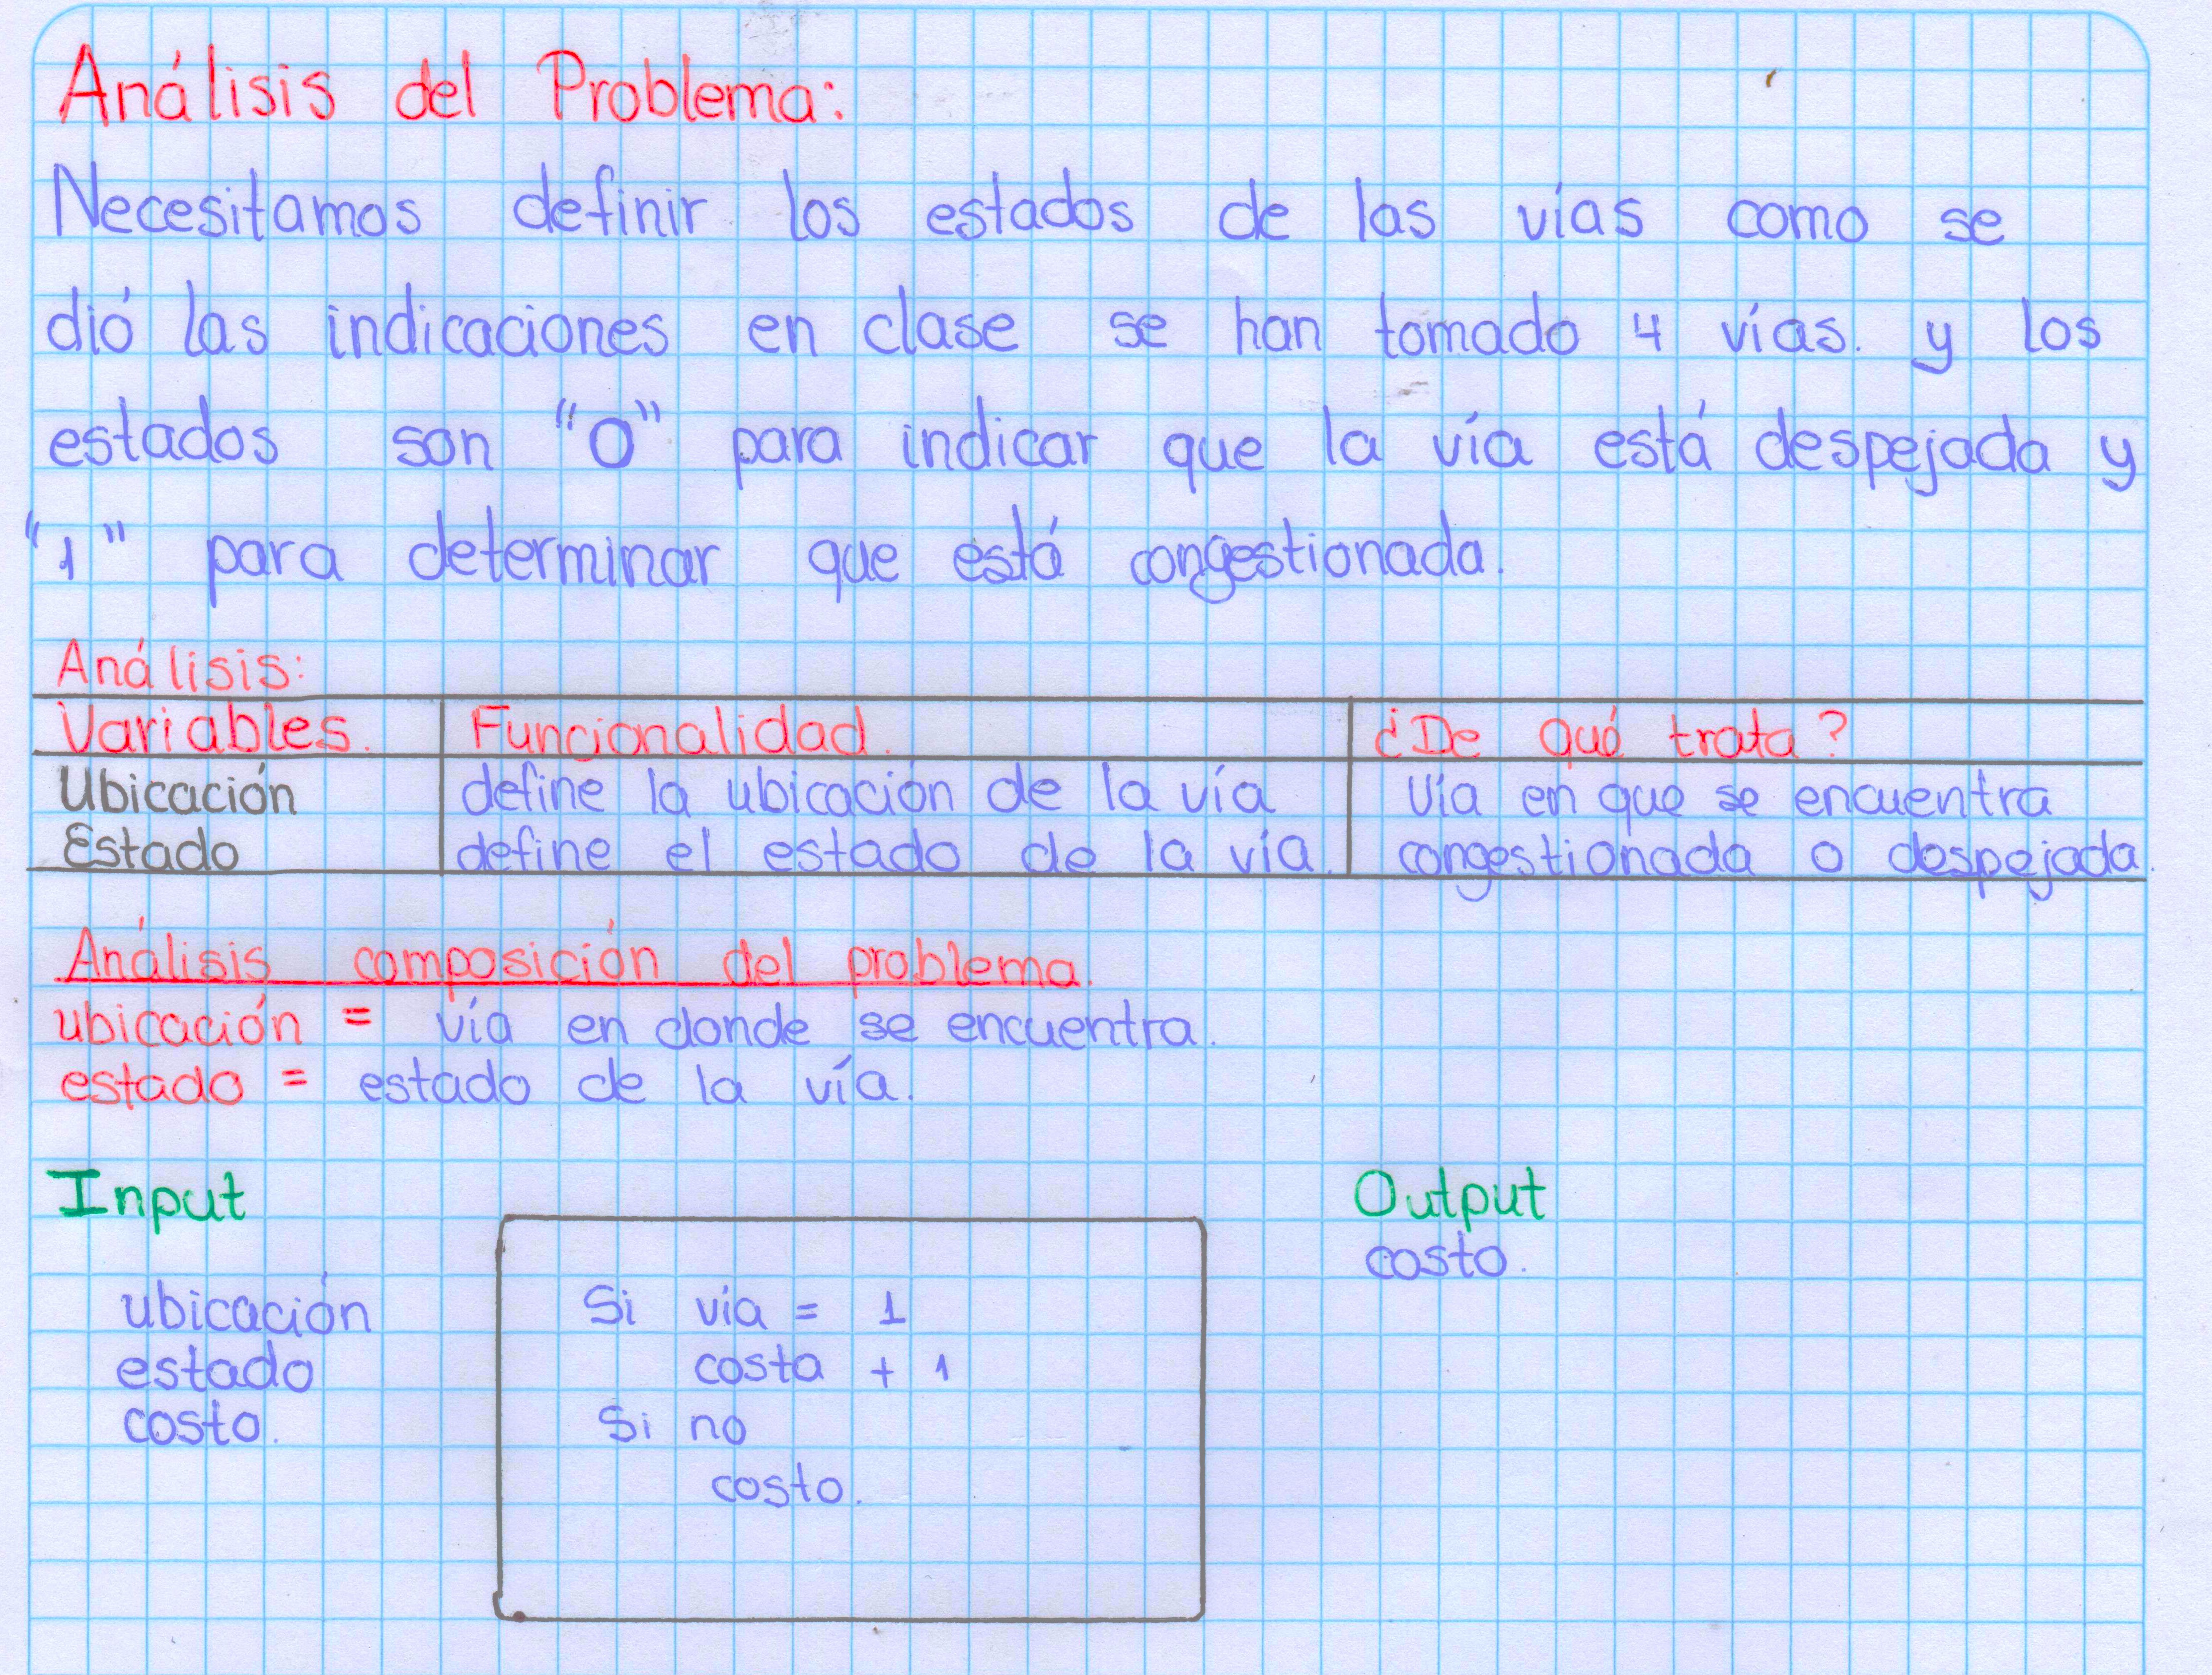 Análisis del Problema:
Necesitamos definir los estados de las vías como se
dió las indicaciones en clase se han tomado 4 vías. y los
estados son "0" para indicar que la vía está despejada y
"1" para determinar que está congestionada.
Análisis:
Variables. Funcionalidad. ¿De qué trata?
Ubicación define la ubicación de la vía Vía en que se encuentra
Estado define el estado de la vía. congestionada o despejada.
Análisis composición del problema.
ubicación = vía en donde se encuentra.
estado = estado de la vía.
Input
ubicación
estado
costo.
Si vía = 1
costa + 1
Si no
costo.
Output
costo.